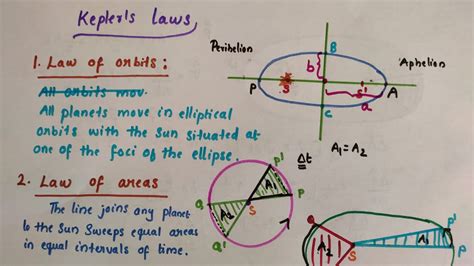 Kepler's laws
1. Law of orbits :
All orbits mov
All planets move in elliptical
orbits with the Sun situated at
one of the foci of the ellipse.
2. Law of areas
The line joins any planet
to the Sun Sweeps equal areas
in equal intervals of time.
Perihelion
B
Aphelion
b
P
S
S'
A
a
C
A₁=A₂
Δt
P'
A₁
P
Q
A₂
S
Q'
A₁
P'
P
S